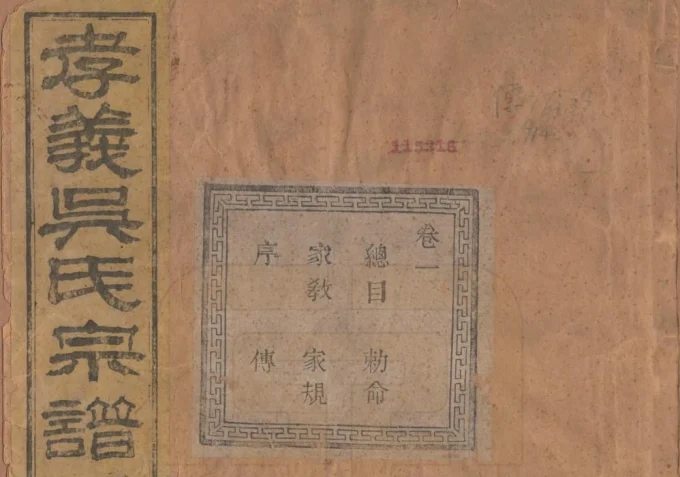 孝義吳氏宗譜
115316
卷一
總目 勅命
家教 家規
序 傳